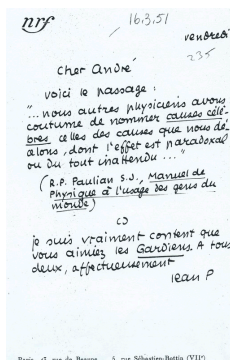 nrf
16.3.51
vendredi
235
Cher André
voici le passage :
"...nous autres physiciens avons
coutume de nommer causes célè-
bres celles des causes que nous dé-
celons, dont l'effet est paradoxal
ou du tout inattendu ..."
(R.P. Paulian S.J., Manuel de
Physique à l'usage des gens du
monde)
je suis vraiment content que
vous aimiez les Gardiens. A tous
deux, affectueusement
Jean P
Paris, 43, rue de Beaune — 5, rue Sébastien-Bottin (VIIe)